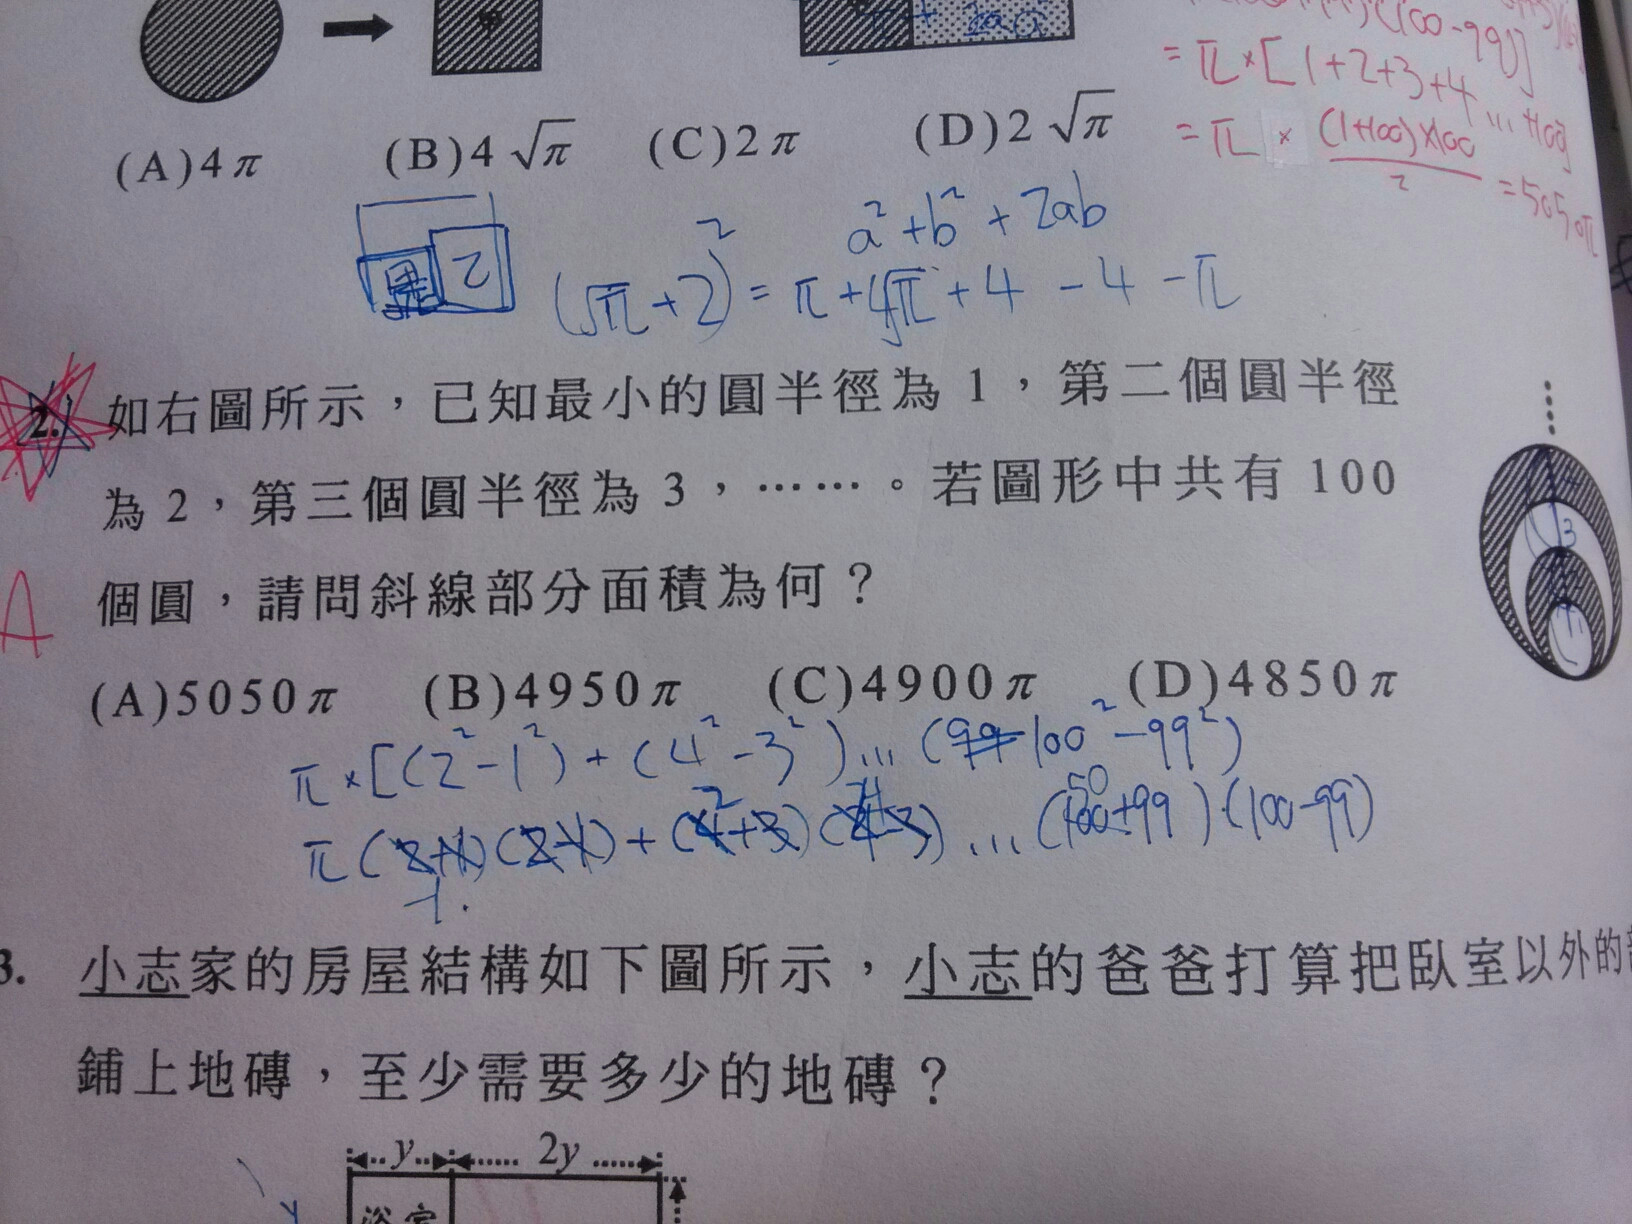 (100-99)]
= π×[1+2+3+4…+100]
= π × (1+100)×100 / 2 = 5050π
(A)4π (B)4√π (C)2π (D)2√π
乙
a²+b²+2ab
(√π+2)² = π+4√π+4-4-π
2. 如右圖所示，已知最小的圓半徑為 1，第二個圓半徑
為 2，第三個圓半徑為 3，……。若圖形中共有 100
個圓，請問斜線部分面積為何？
A
3
1
(A)5050π (B)4950π (C)4900π (D)4850π
π×[(2²-1²)+(4²-3²)…(100²-99²)
π(2+1)(2-1)+(4+3)(4-3)…(100+99)(100-99)
50
3. 小志家的房屋結構如下圖所示，小志的爸爸打算把臥室以外的
鋪上地磚，至少需要多少的地磚？
y 2y
浴室
y